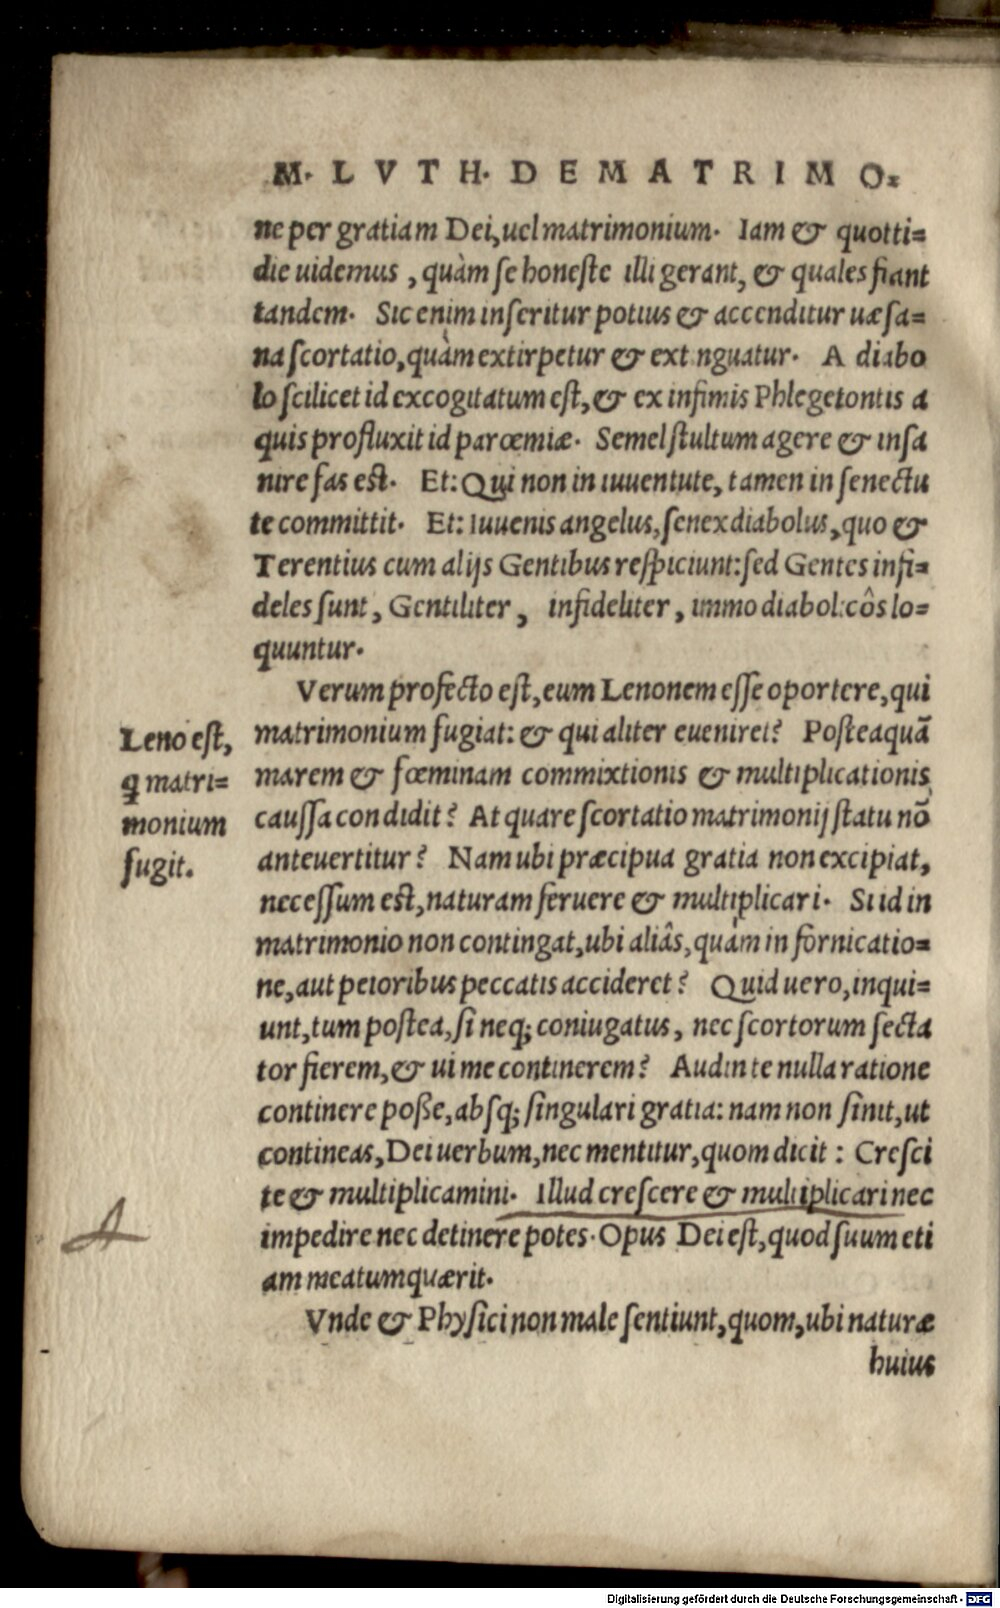 M. LVTH. DE MATRIMO-
ne per gratiam Dei, uel matrimonium. Iam & quotti=
die uidemus, quàm se honeste illi gerant, & quales fiant
tandem. Sic enim inseritur potius & accenditur uæsa=
na scortatio, quàm extirpetur & extinguatur. A diabo
lo scilicet id excogitatum est, & ex infimis Phlegetontis a
quis profluxit id parœmiæ. Semel stultum agere & insa
nire fas est. Et: Qui non in iuuentute, tamen in senectu
te committit. Et: Iuuenis angelus, senex diabolus, quo &
Terentius cum alijs Gentibus respiciunt: sed Gentes infi=
deles sunt, Gentiliter, infideliter, immo diabolicôs lo=
quuntur.
Verum profecto est, eum Lenonem esse oportere, qui
matrimonium fugiat: & qui aliter eueniret? Posteaquā
marem & fœminam commixtionis & multiplicationis
caussa condidit? At quare scortatio matrimonij statu nō
anteuertitur? Nam ubi præcipua gratia non excipiat,
necessum est, naturam feruere & multiplicari. Si id in
matrimonio non contingat, ubi aliâs, quàm in fornicatio=
ne, aut peioribus peccatis accideret? Quid uero, inqui=
unt, tum postea, si neq; coniugatus, nec scortorum secta
tor fierem, & ui me continerem? Audin te nulla ratione
continere posse, absq; singulari gratia: nam non sinit, ut
contineas, Dei uerbum, nec mentitur, quom dicit: Cresci
te & multiplicamini. Illud crescere & multiplicari nec
impedire nec detinere potes. Opus Dei est, quod suum eti
am meatum quærit.
Vnde & Physici non male sentiunt, quom, ubi naturæ
huius
Leno est,
q̃ matri=
monium
fugit.
Digitalisierung gefördert durch die Deutsche Forschungsgemeinschaft - DFG